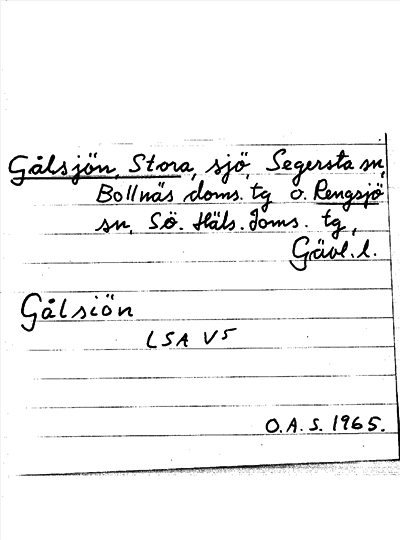 Gålsjön, Stora, sjö, Segersta sn,
Bollnäs doms. tg o. Rengsjö
sn, Sö. Häls. doms. tg,
Gävl. l.
Gålsiön
LSA V5
O.A.S. 1965.